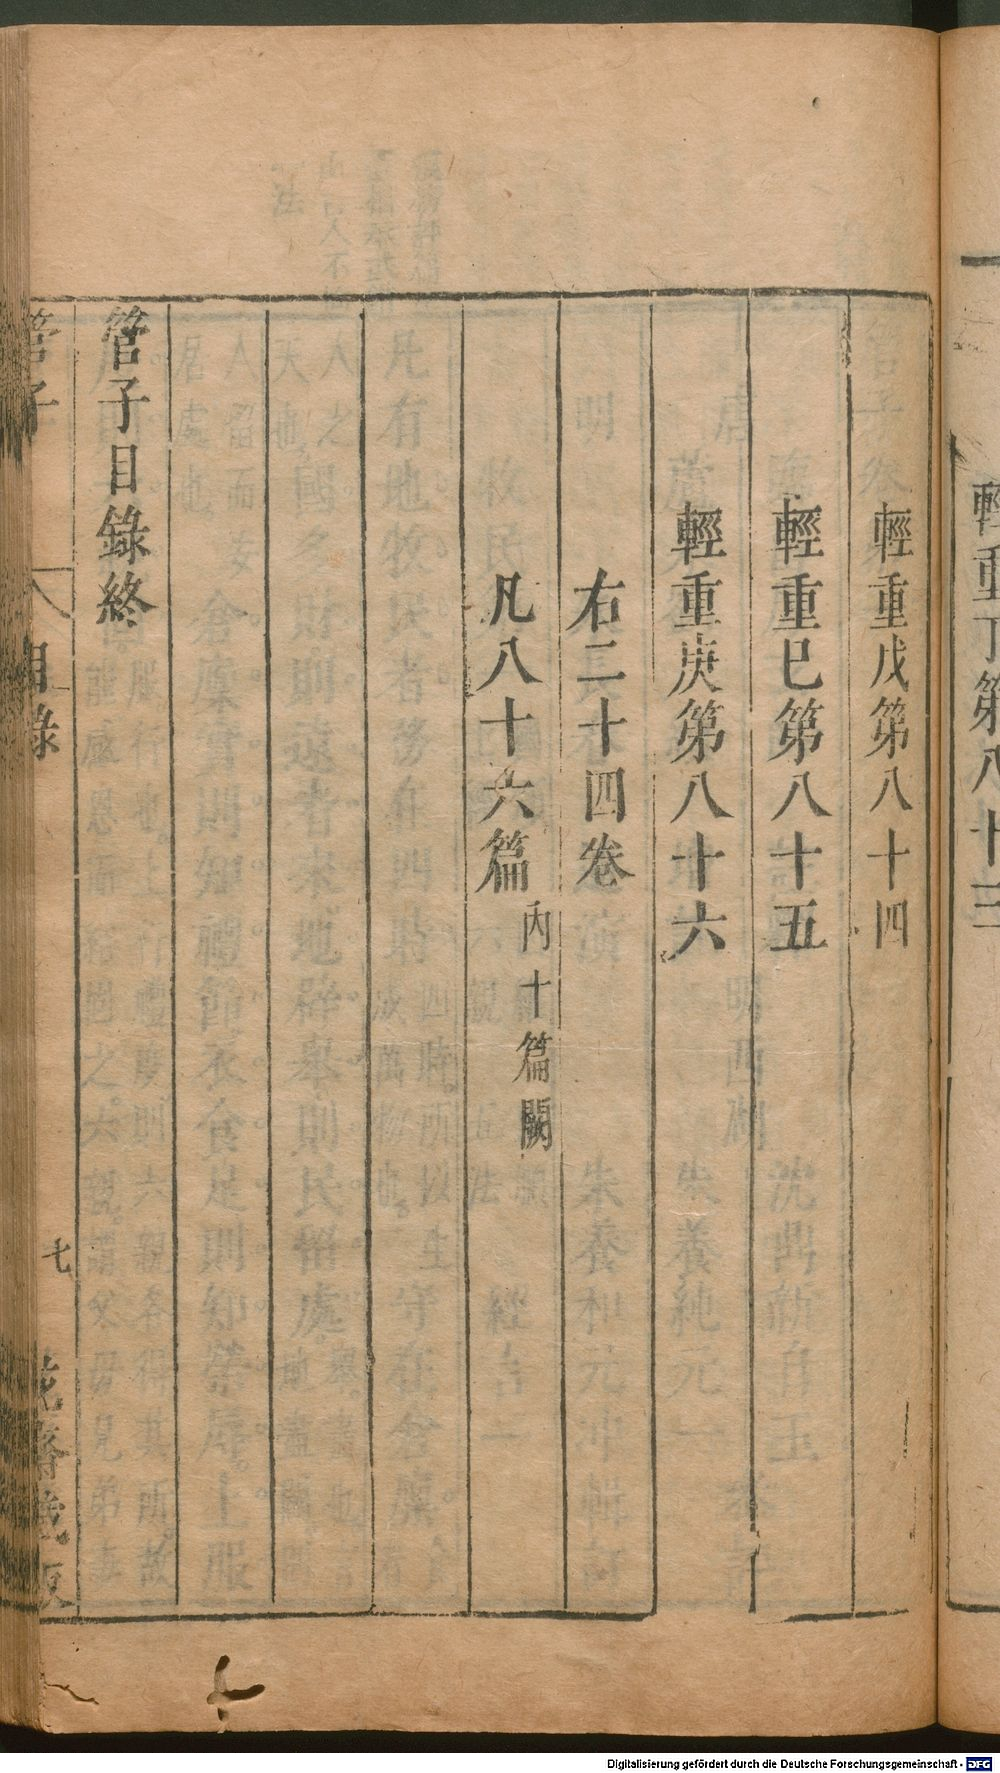 輕重丁第八十三
輕重戊第八十四
輕重巳第八十五
輕重庚第八十六
右二十四卷
凡八十六篇 內十篇闕
管子目錄終
管子 目錄 七 花齋藏板
Digitalisierung gefördert durch die Deutsche Forschungsgemeinschaft - DFG